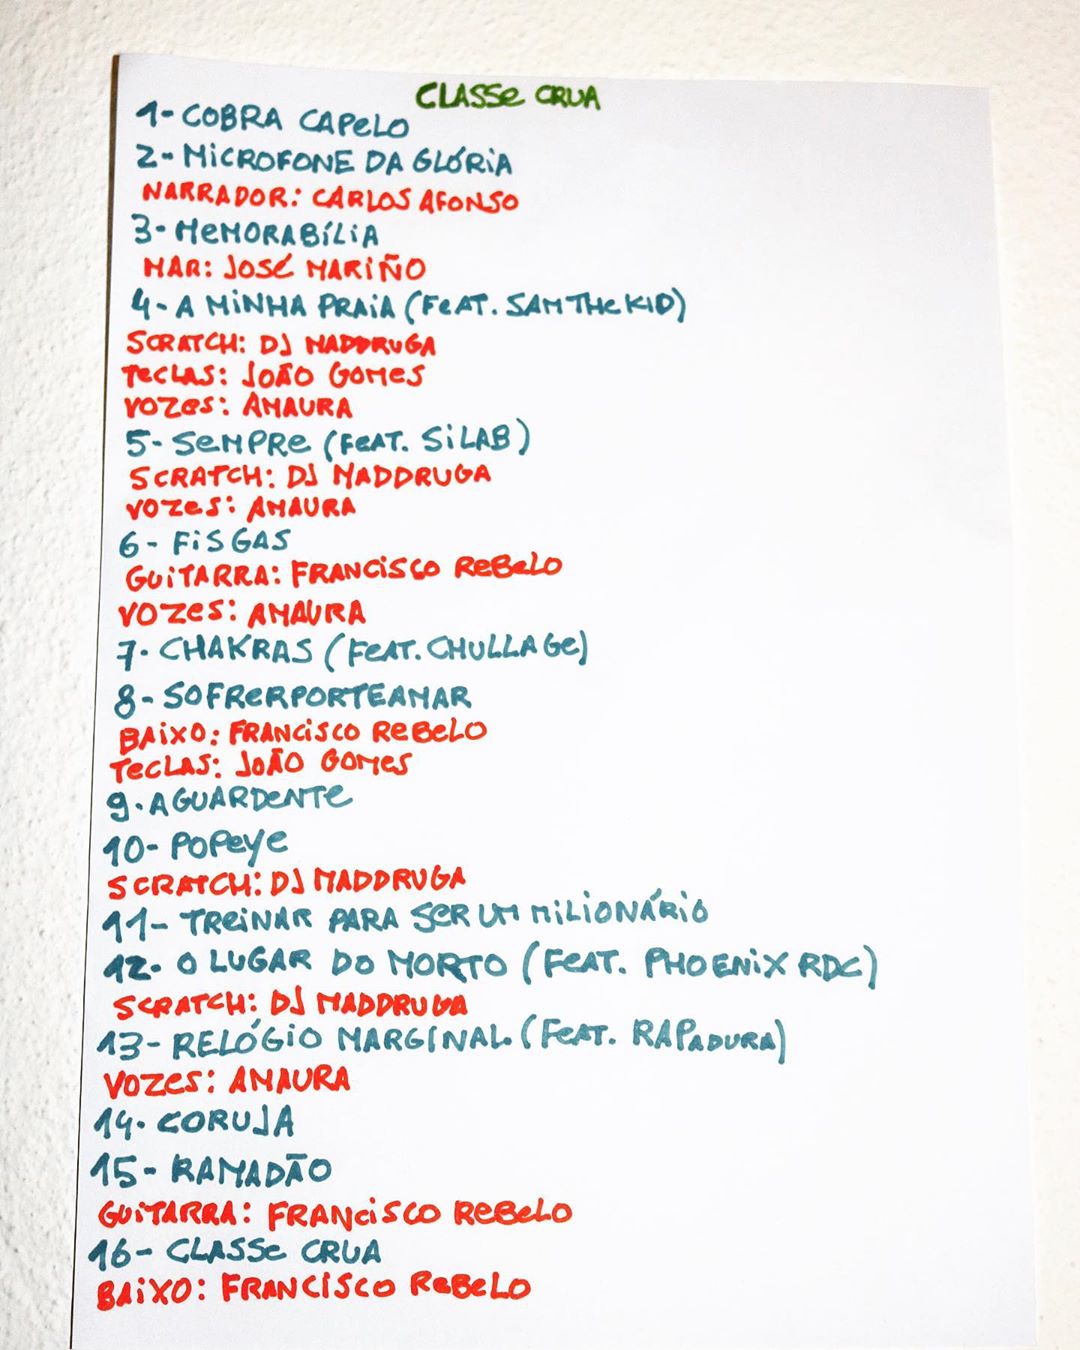 CLASSE CRUA
1- COBRA CAPELO
2- MICROFONE DA GLÓRIA
NARRADOR: CARLOS AFONSO
3- MEMORABÍLIA
NAR: JOSÉ MARIÑO
4- A MINHA PRAIA (FEAT. SAM THE KID)
SCRATCH: DJ MADDRUGA
TECLAS: JOÃO GOMES
VOZES: AMAURA
5- SEMPRE (FEAT. SILAB)
SCRATCH: DJ MADDRUGA
VOZES: AMAURA
6- FISGAS
GUITARRA: FRANCISCO REBELO
VOZES: AMAURA
7- CHAKRAS (FEAT. CHULLAGE)
8- SOFRERPORTEAMAR
BAIXO: FRANCISCO REBELO
TECLAS: JOÃO GOMES
9- AGUARDENTE
10- POPEYE
SCRATCH: DJ MADDRUGA
11- TREINAR PARA SER UM MILIONÁRIO
12- O LUGAR DO MORTO (FEAT. PHOENIX RDC)
SCRATCH: DJ MADDRUGA
13- RELÓGIO MARGINAL (FEAT. RAPADURA)
VOZES: AMAURA
14- CORUJA
15- RAMADÃO
GUITARRA: FRANCISCO REBELO
16- CLASSE CRUA
BAIXO: FRANCISCO REBELO